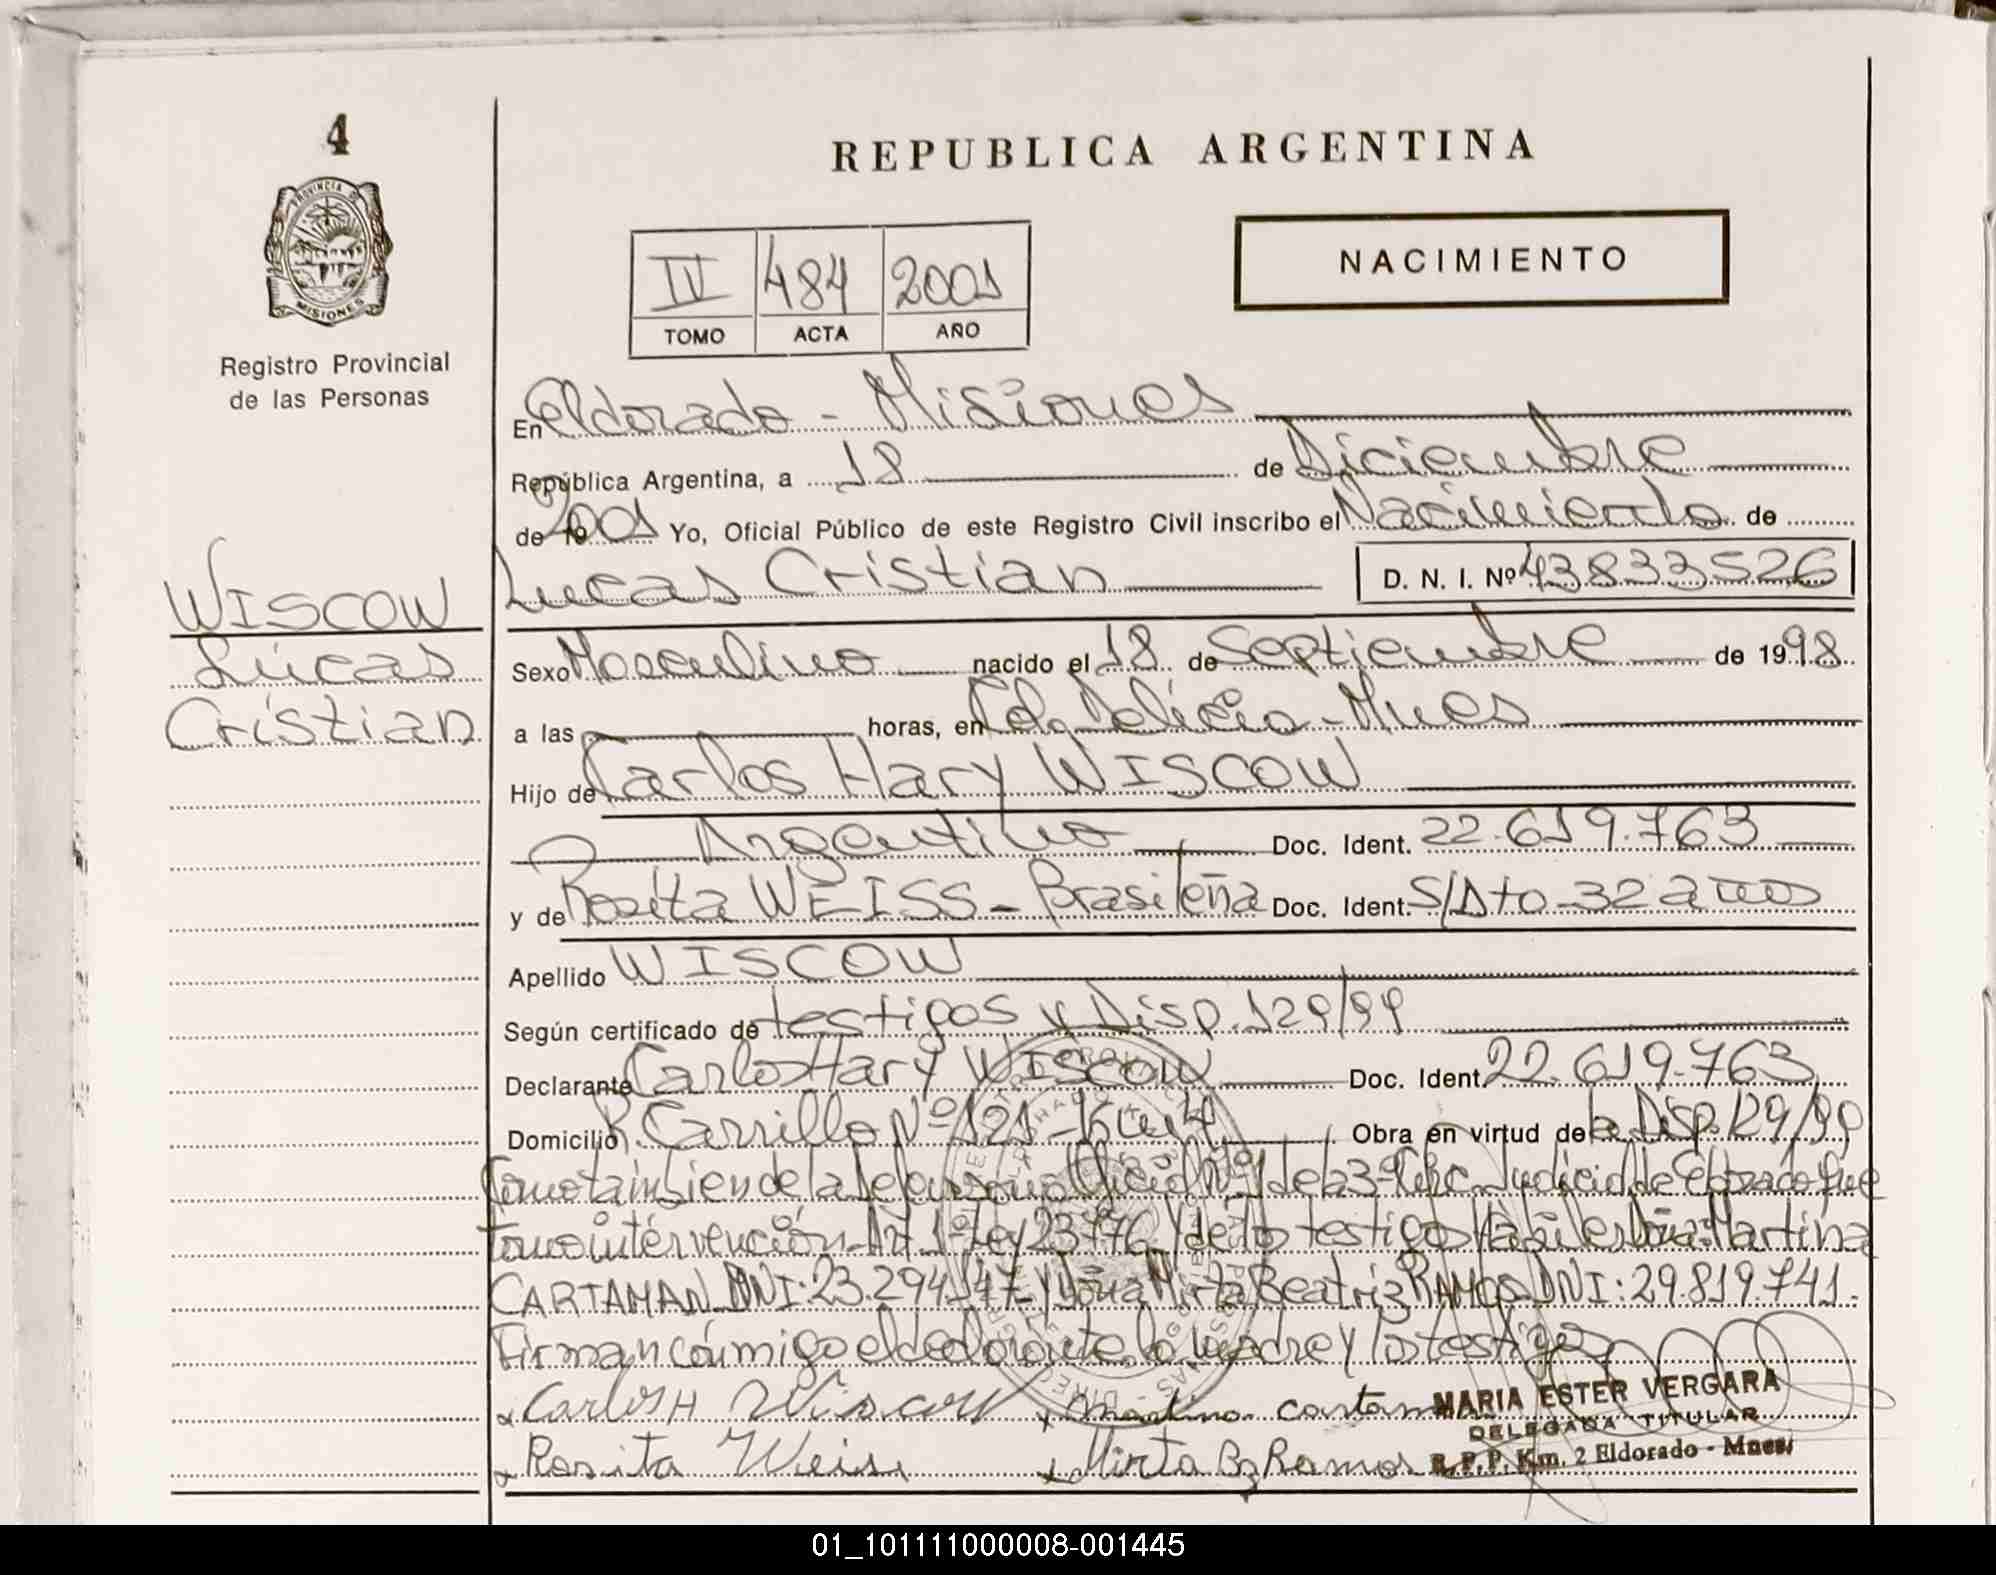 4
REPUBLICA ARGENTINA
PROVINCIA DE
MISIONES
NACIMIENTO
IV 484 2001
TOMO ACTA AÑO
Registro Provincial
de las Personas
En Eldorado - Misiones
República Argentina, a 18 de Diciembre
de 19 2001 Yo, Oficial Público de este Registro Civil inscribo el Nacimiento de
Lucas Cristian D. N. I. Nº 43.833.526
WISCOW
Lucas
Cristian
Sexo Masculino nacido el 18 de Septiembre de 1998
a las horas, en Pto. Delicia - Mnes
Hijo de Carlos Hary WISCOW
Argentino Doc. Ident. 22.619.763
y de Rosita WEISS - Brasileña Doc. Ident. S/Dto - 32 años
Apellido WISCOW
Según certificado de testigos y Disp. 129/99
Declarante Carlos Hary WISCOW Doc. Ident. 22.619.763
Domicilio R. Carrillo Nº 121 - Km 4 Obra en virtud de la Disp. 129/99
Como tambien de la Oficial Nº 1 de la 3ª Circ. Judicial de Eldorado que
tomo intervención - Art. 1º Ley 23.776 y de los testigos Doña Martina
CARTAMAN DNI: 23.294.147 y Doña Mirta Beatriz RAMOS DNI: 29.819.741.
Firman conmigo el declarante, la madre y los testigos
x Carlos H Wiscow x Martina Cartaman
MARIA ESTER VERGARA
DELEGADA TITULAR
x Rosita Weiss x Mirta Bz Ramos R.P.P. Km. 2 Eldorado - Mnes.
01_101111000008-001445